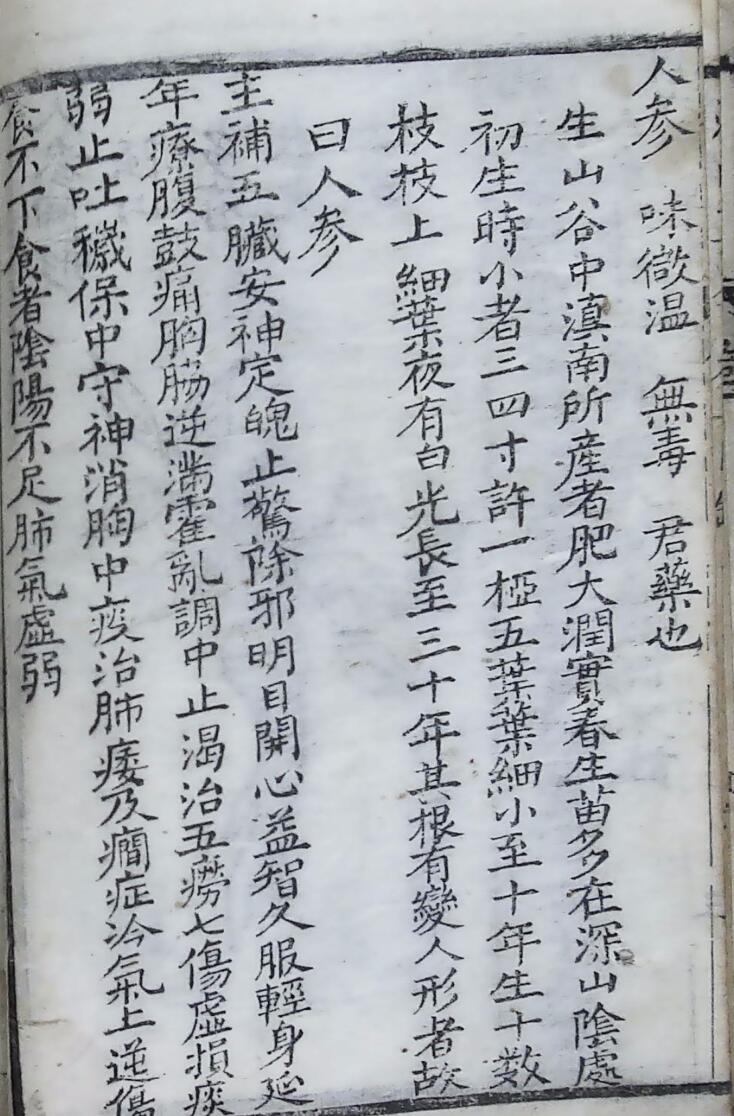 人参 味微温 無毒 君藥也
生山谷中滇南所産者肥大潤實春生苗多在深山陰處
初生時小者三四寸許一椏五葉葉細小至十年生十数
枝枝上細葉夜有白光長至三十年其根有變人形者故
曰人参
主補五臓安神定魄止驚除邪明目開心益智久服輕身延
年療腹鼓痛胸脇逆满霍亂調中止渴治五癆七傷虚損痰
弱止吐穢保中守神消胸中痰治肺痿及癇症冷氣上逆傷
食不下食者陰陽不足肺氣虚弱